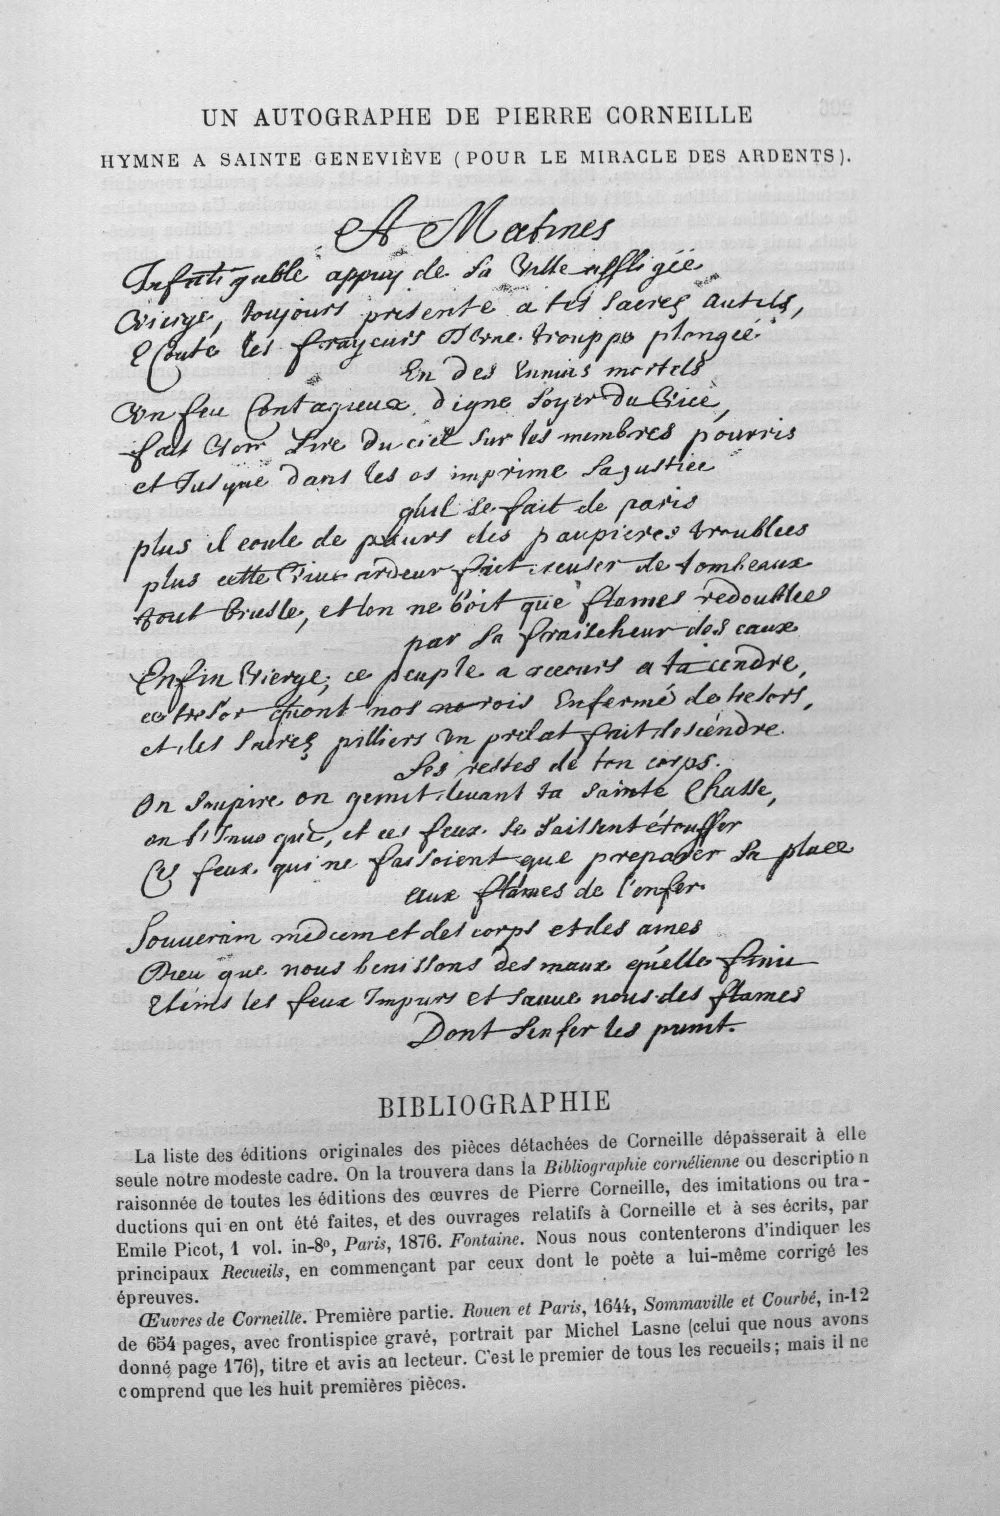 UN AUTOGRAPHE DE PIERRE CORNEILLE
HYMNE A SAINTE GENEVIÈVE (POUR LE MIRACLE DES ARDENTS).
A Matines
Infatigable appuy de la Ville affligée
Vierge, toujours presente a tes sacrez autels,
Ecoute les frayeurs D'Vne trouppe plongée
En des Ennuis mortels
Vn feu Contagieux, digne loyer Du Vice,
fait Voir L'ire Du ciel sur les membres pourris
et Jusque dans les os imprime la justice
qu'il se fait de paris
plus il coule de pleurs des paupieres troublees
plus cette Viue ardeur fait creuser de tombeaux
tout brusle, et l'on ne Voit que flames redoublees
par la fraischeur des eaux
Enfin Vierge, ce peuple a recours a ta cendre,
ce tresor qu'ont nos rois Enfermé de tresors,
et des sacrez pilliers Vn prelat fait descendre
Les restes de ton corps.
On soupire on gemit deuant ta sainte Chasse,
on t'Inuoque, et ces feux se laissent étouffer
Ces feux qui ne faisoient que preparer la place
aux flames de l'enfer.
Souuerain medecin et des corps et des ames
Dieu que nous benissons des maux qu'elle finit
Eteins les feux Impurs et sauue nous des flames
Dont L'enfer les punit.
BIBLIOGRAPHIE
La liste des éditions originales des pièces détachées de Corneille dépasserait à elle
seule notre modeste cadre. On la trouvera dans la Bibliographie cornélienne ou description
raisonnée de toutes les éditions des œuvres de Pierre Corneille, des imitations ou tra-
ductions qui en ont été faites, et des ouvrages relatifs à Corneille et à ses écrits, par
Emile Picot, 1 vol. in-8º, Paris, 1876. Fontaine. Nous nous contenterons d'indiquer les
principaux Recueils, en commençant par ceux dont le poète a lui-même corrigé les
épreuves.
Œuvres de Corneille. Première partie. Rouen et Paris, 1644, Sommaville et Courbé, in-12
de 654 pages, avec frontispice gravé, portrait par Michel Lasne (celui que nous avons
donné page 176), titre et avis au lecteur. C'est le premier de tous les recueils; mais il ne
comprend que les huit premières pièces.